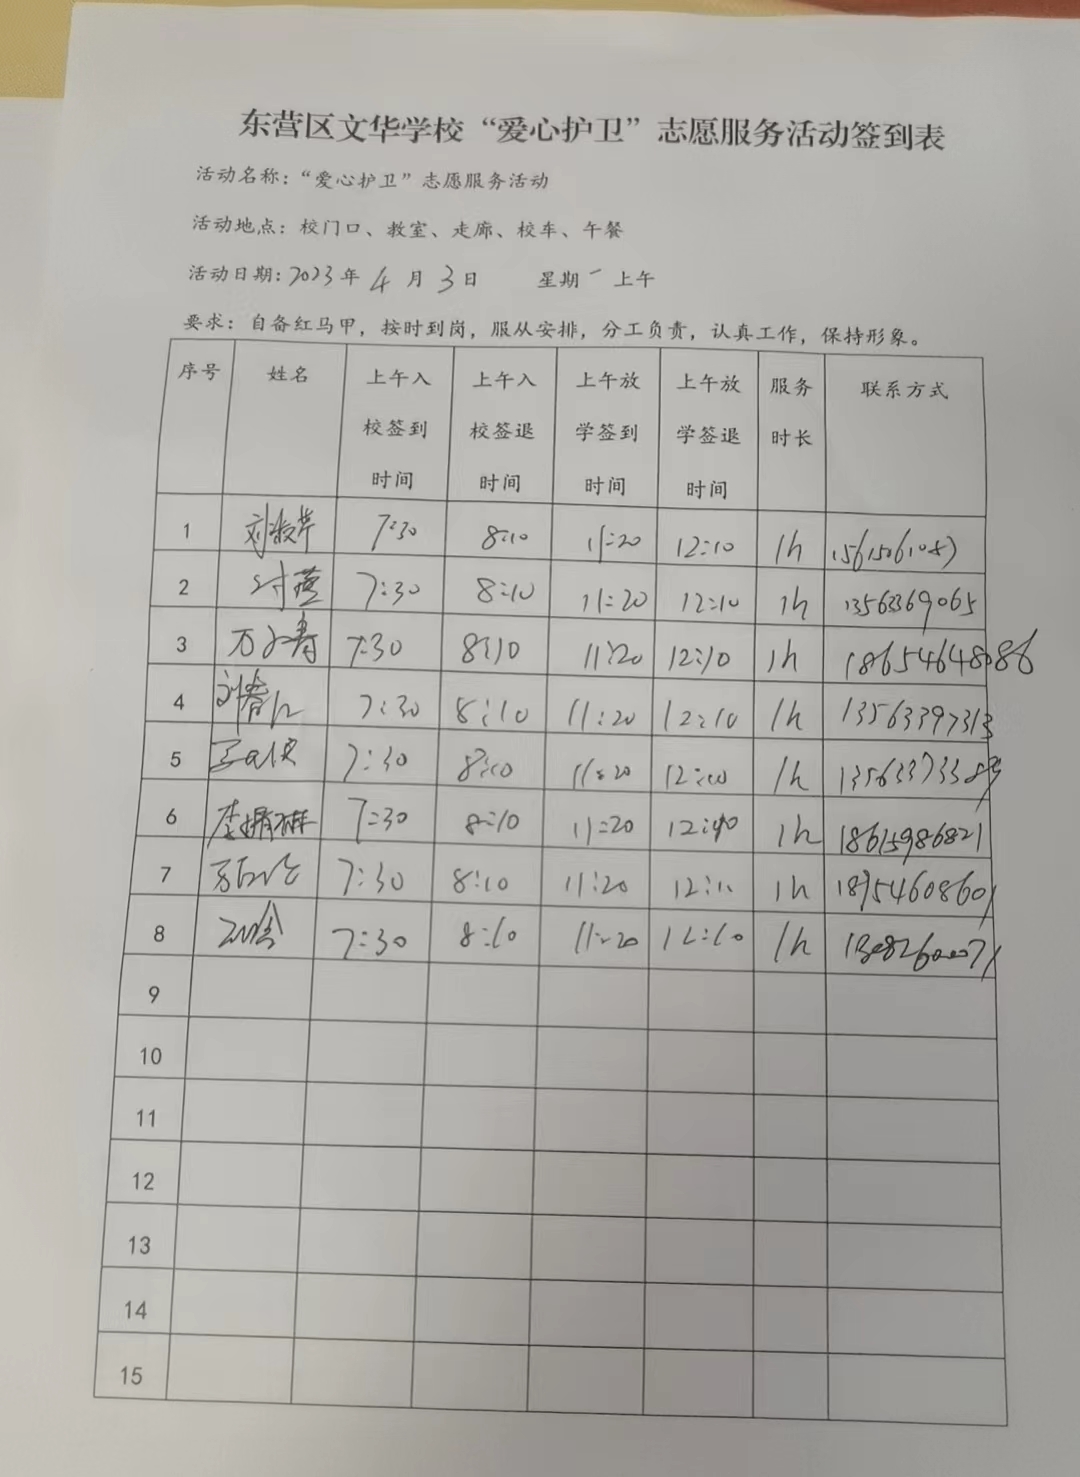 东营区文华学校“爱心护卫”志愿服务活动签到表
活动名称：“爱心护卫”志愿服务活动
活动地点：校门口、教室、走廊、校车、午餐
活动日期：2023年4月3日 星期一上午
要求：自备红马甲，按时到岗，服从安排，分工负责，认真工作，保持形象。
序号 姓名 上午入校签到时间 上午入校签退时间 上午放学签到时间 上午放学签退时间 服务时长 联系方式
1 7:30 8:10 11:20 12:10 1h
2 7:30 8:10 11:20 12:10 1h 13563369065
3 7:30 8:10 11:20 12:10 1h
4 7:30 8:10 11:20 12:10 1h 13563397313
5 7:30 8:10 11:20 12:10 1h
6 7:30 8:10 11:20 1h 18615986821
7 7:30 8:10 11:20 1h 18954608601
8 7:30 8:10 11:20 12:10 1h
9
10
11
12
13
14
15